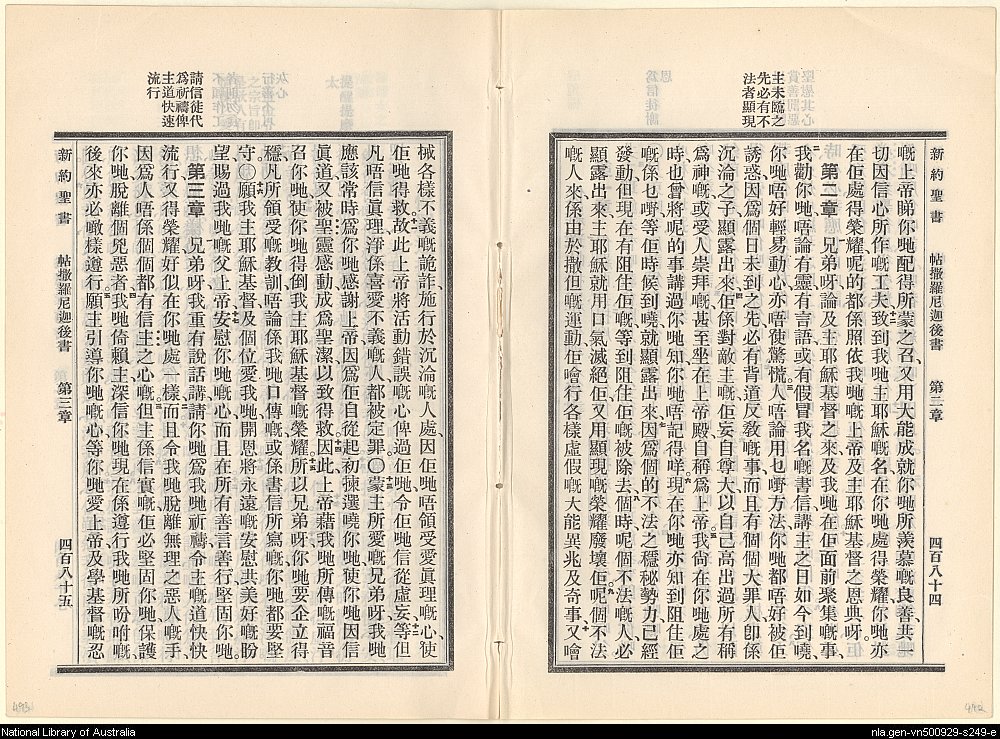 主未臨之
先必有不
法者顯現
新約聖書 帖撒羅尼迦後書 第二章 四百八十四
嘅上帝睇你哋配得所蒙之召、又用大能成就你哋所羨慕嘅良善、共
一切因信心所作嘅工夫、致到我哋主耶穌嘅名在你哋處得榮耀、你哋亦
在佢處得榮耀、呢的都係照依我哋嘅上帝及主耶穌基督之恩典呀。
第二章 兄弟呀、論及主耶穌基督之來、及我哋在佢面前聚集嘅事、
我勸你哋、唔論有靈有言語、或有假冒我名嘅書信、講主之日如今到嘵、
你哋唔好輕易動心、亦唔使驚慌、人唔論用乜嘢方法、你哋都唔好被佢
誘惑、因爲個日未到之先、必有背道反敎嘅事、而且有個個大罪人、卽係
沉淪之子顯露出來、佢係對敵主嘅、佢妄自尊大、以自己高出過所有稱
爲神嘅、或受人崇拜嘅、甚至坐在上帝殿、自稱爲上帝、我尙在你哋處之
時、也曾將呢的事講過你哋知、你哋唔記得咩、現在你哋亦知到阻住佢
嘅係乜嘢、等佢時候到嘵、就顯露出來、因爲個的不法之穩秘勢力、已經
發動、但現在有阻住佢嘅、等到阻住佢嘅被除去、個時呢個不法嘅人、必
顯露出來、主耶穌就用口氣滅絕佢、又用顯現嘅榮耀廢壞佢、呢個不法
嘅人來、係由於撒但嘅運動、佢噲行各樣虛假嘅大能異兆及奇事、又噲
請信徒代
爲祈禱俾
主道快速
流行
械各樣不義嘅詭詐、施行於沉淪嘅人處、因佢哋唔領受愛眞理嘅心、使
佢哋得救、故此上帝將活動錯誤嘅心俾過佢哋、令佢哋信從虛妄、等但
凡唔信眞理、淨係喜愛不義嘅人、都被定罪。〇蒙主所愛嘅兄弟呀、我哋
應該常時爲你哋感謝上帝、因爲佢自從起初揀選嘵你哋、使你哋因信
眞道、又被聖靈感動、成爲聖潔、以致得救、因此上帝藉我哋所傳嘅福音
召你哋、使你哋得倒我主耶穌基督嘅榮耀、所以兄弟呀、你哋要企立得
穩、凡所領受嘅教訓、唔論係我哋口傳嘅、或係書信所寫嘅、你哋都要堅
守。〇願我主耶穌基督、及個位愛我哋、開恩將永遠嘅安慰、共美好嘅盼
望、賜過我哋嘅父上帝、安慰你哋嘅心、而且在所有善言善行、堅固你哋。
第三章 兄弟呀、我重有說話講、請你哋爲我哋祈禱、令主嘅道快快
流行、又得榮耀、好似在你哋處一樣、而且令我哋脫離無理之惡人嘅手、
因爲人唔係個個都有信主之心嘅、但主係信實嘅、佢必堅固你哋、保護
你哋、脫離個兇惡者、我哋倚賴主、深信你哋現在係遵行我哋所吩咐嘅、
後來亦必噉樣遵行、願主引導你哋嘅心、等你哋愛上帝、及學基督嘅忍
新約聖書 帖撒羅尼迦後書 第三章 四百八十五
493
492
National Library of Australia
nla.gen-vn500929-s249-e